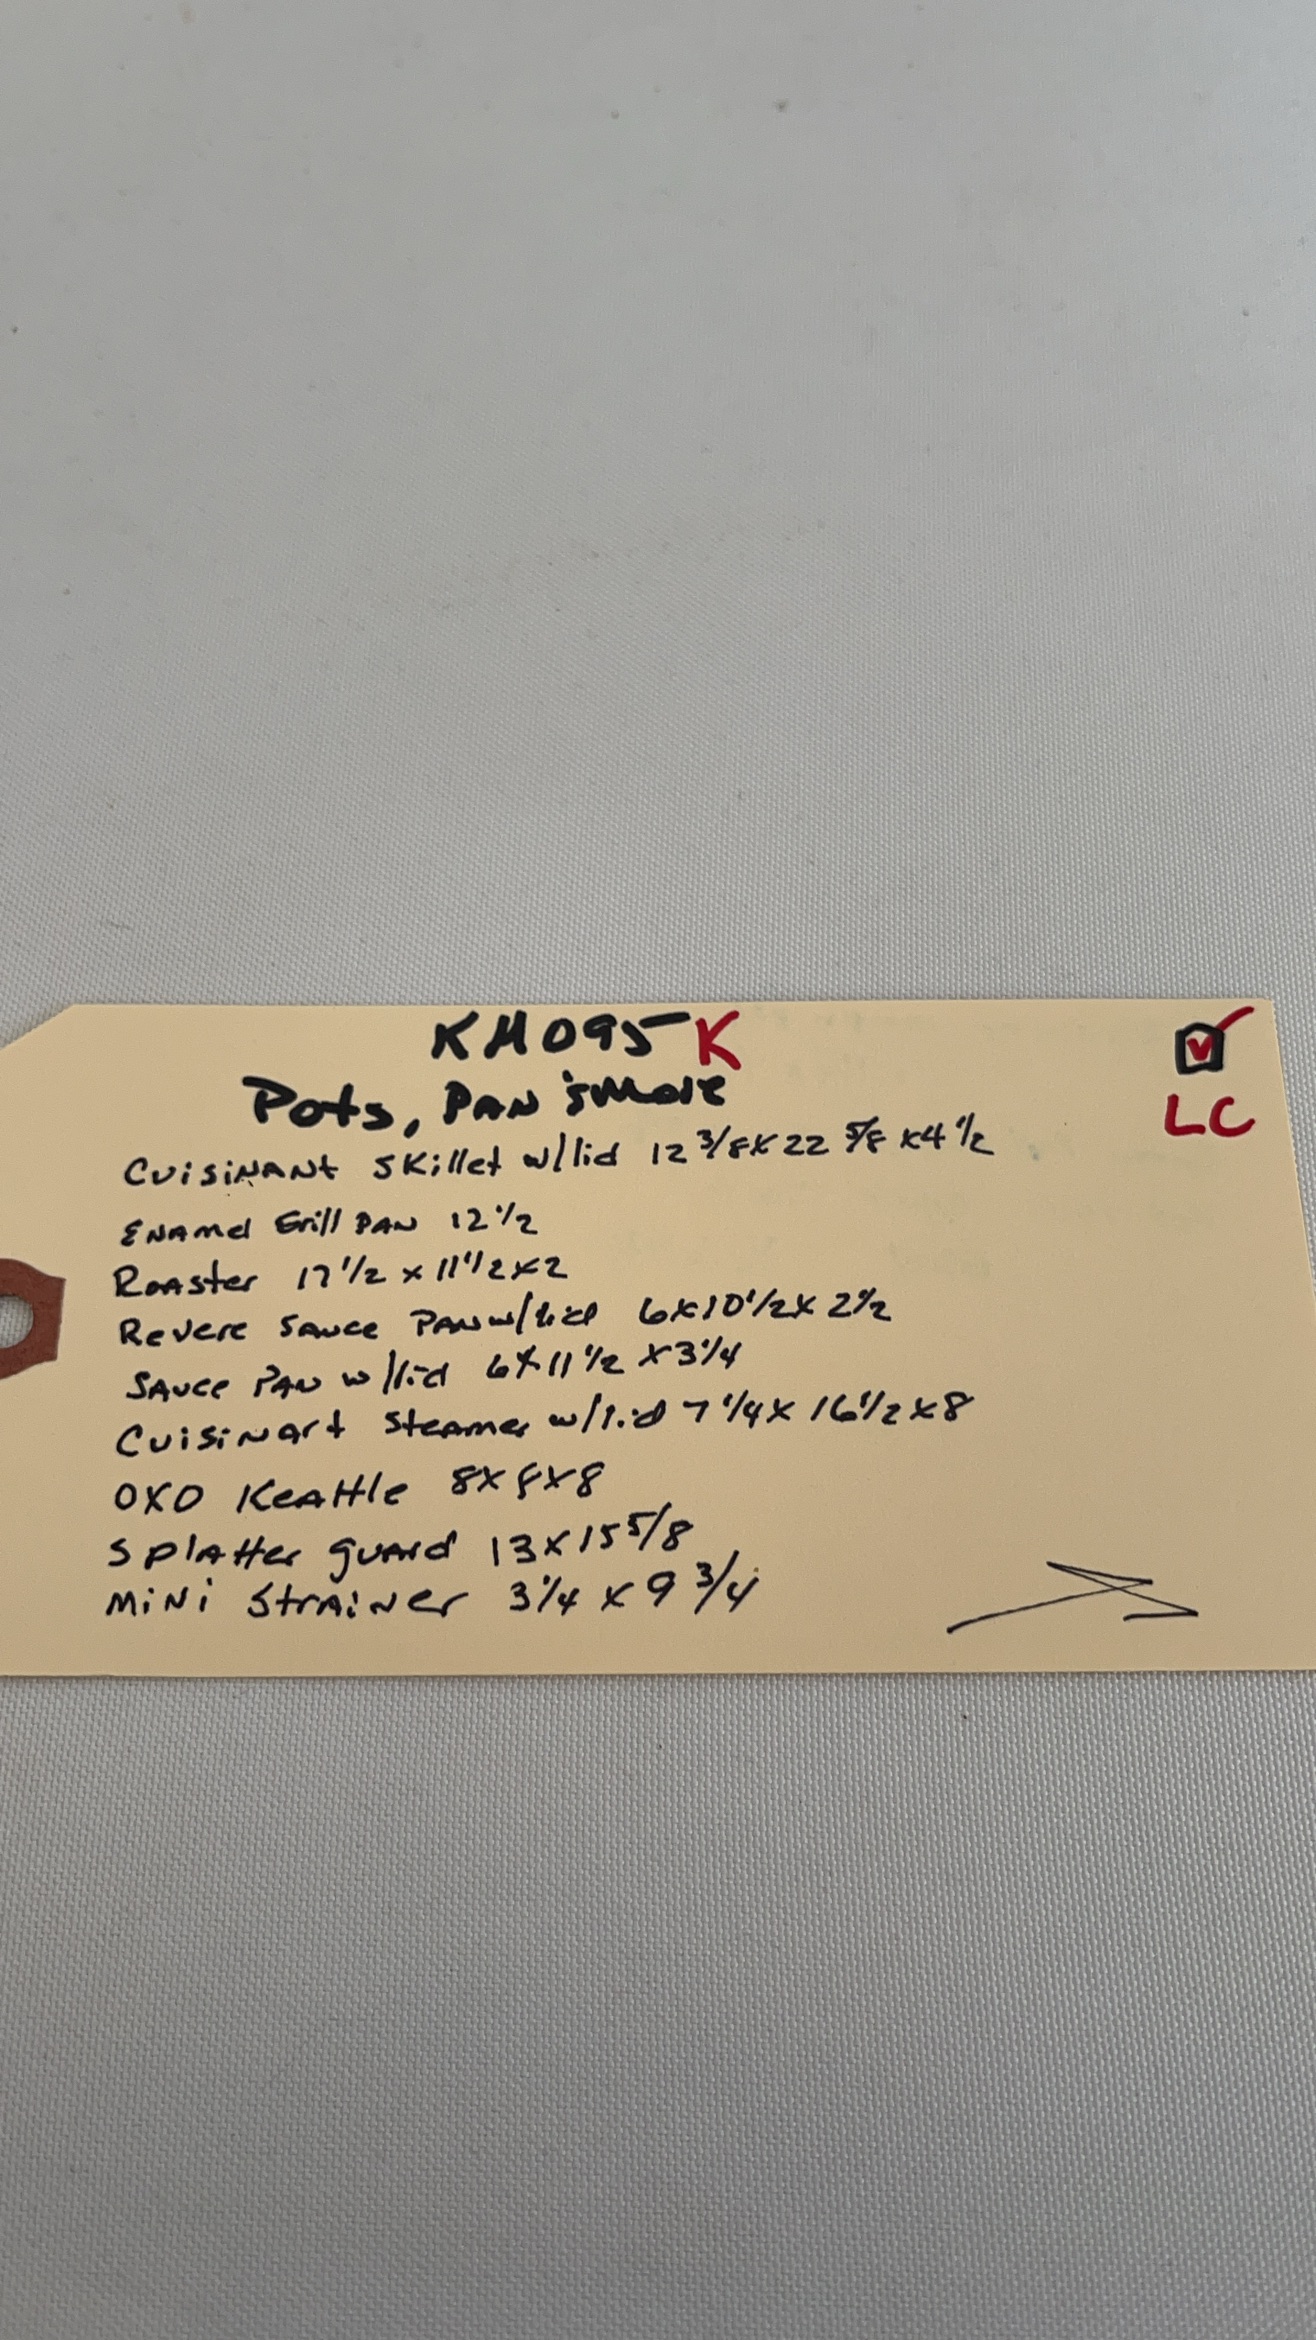 KH095 K
LC
Pots, PAN 'sMore
CUISINANT SKillet w/lid 12 3/8 x 22 5/8 x 4 1/2
ENAMEl Grill PAN 12 1/2
ROASter 17 1/2 x 11 1/2 x 2
Revere Sauce PAN w/lid 6x10 1/2 x 2 1/2
SAUCE PAN w/lid 6x11 1/2 x 3 1/4
CUISINArt SteAmer w/lid 7 1/4 x 16 1/2 x 8
OXO KeAttle 8x8x8
SplAtter guArd 13 x 15 5/8
MiNi StrAiNer 3 1/4 x 9 3/4